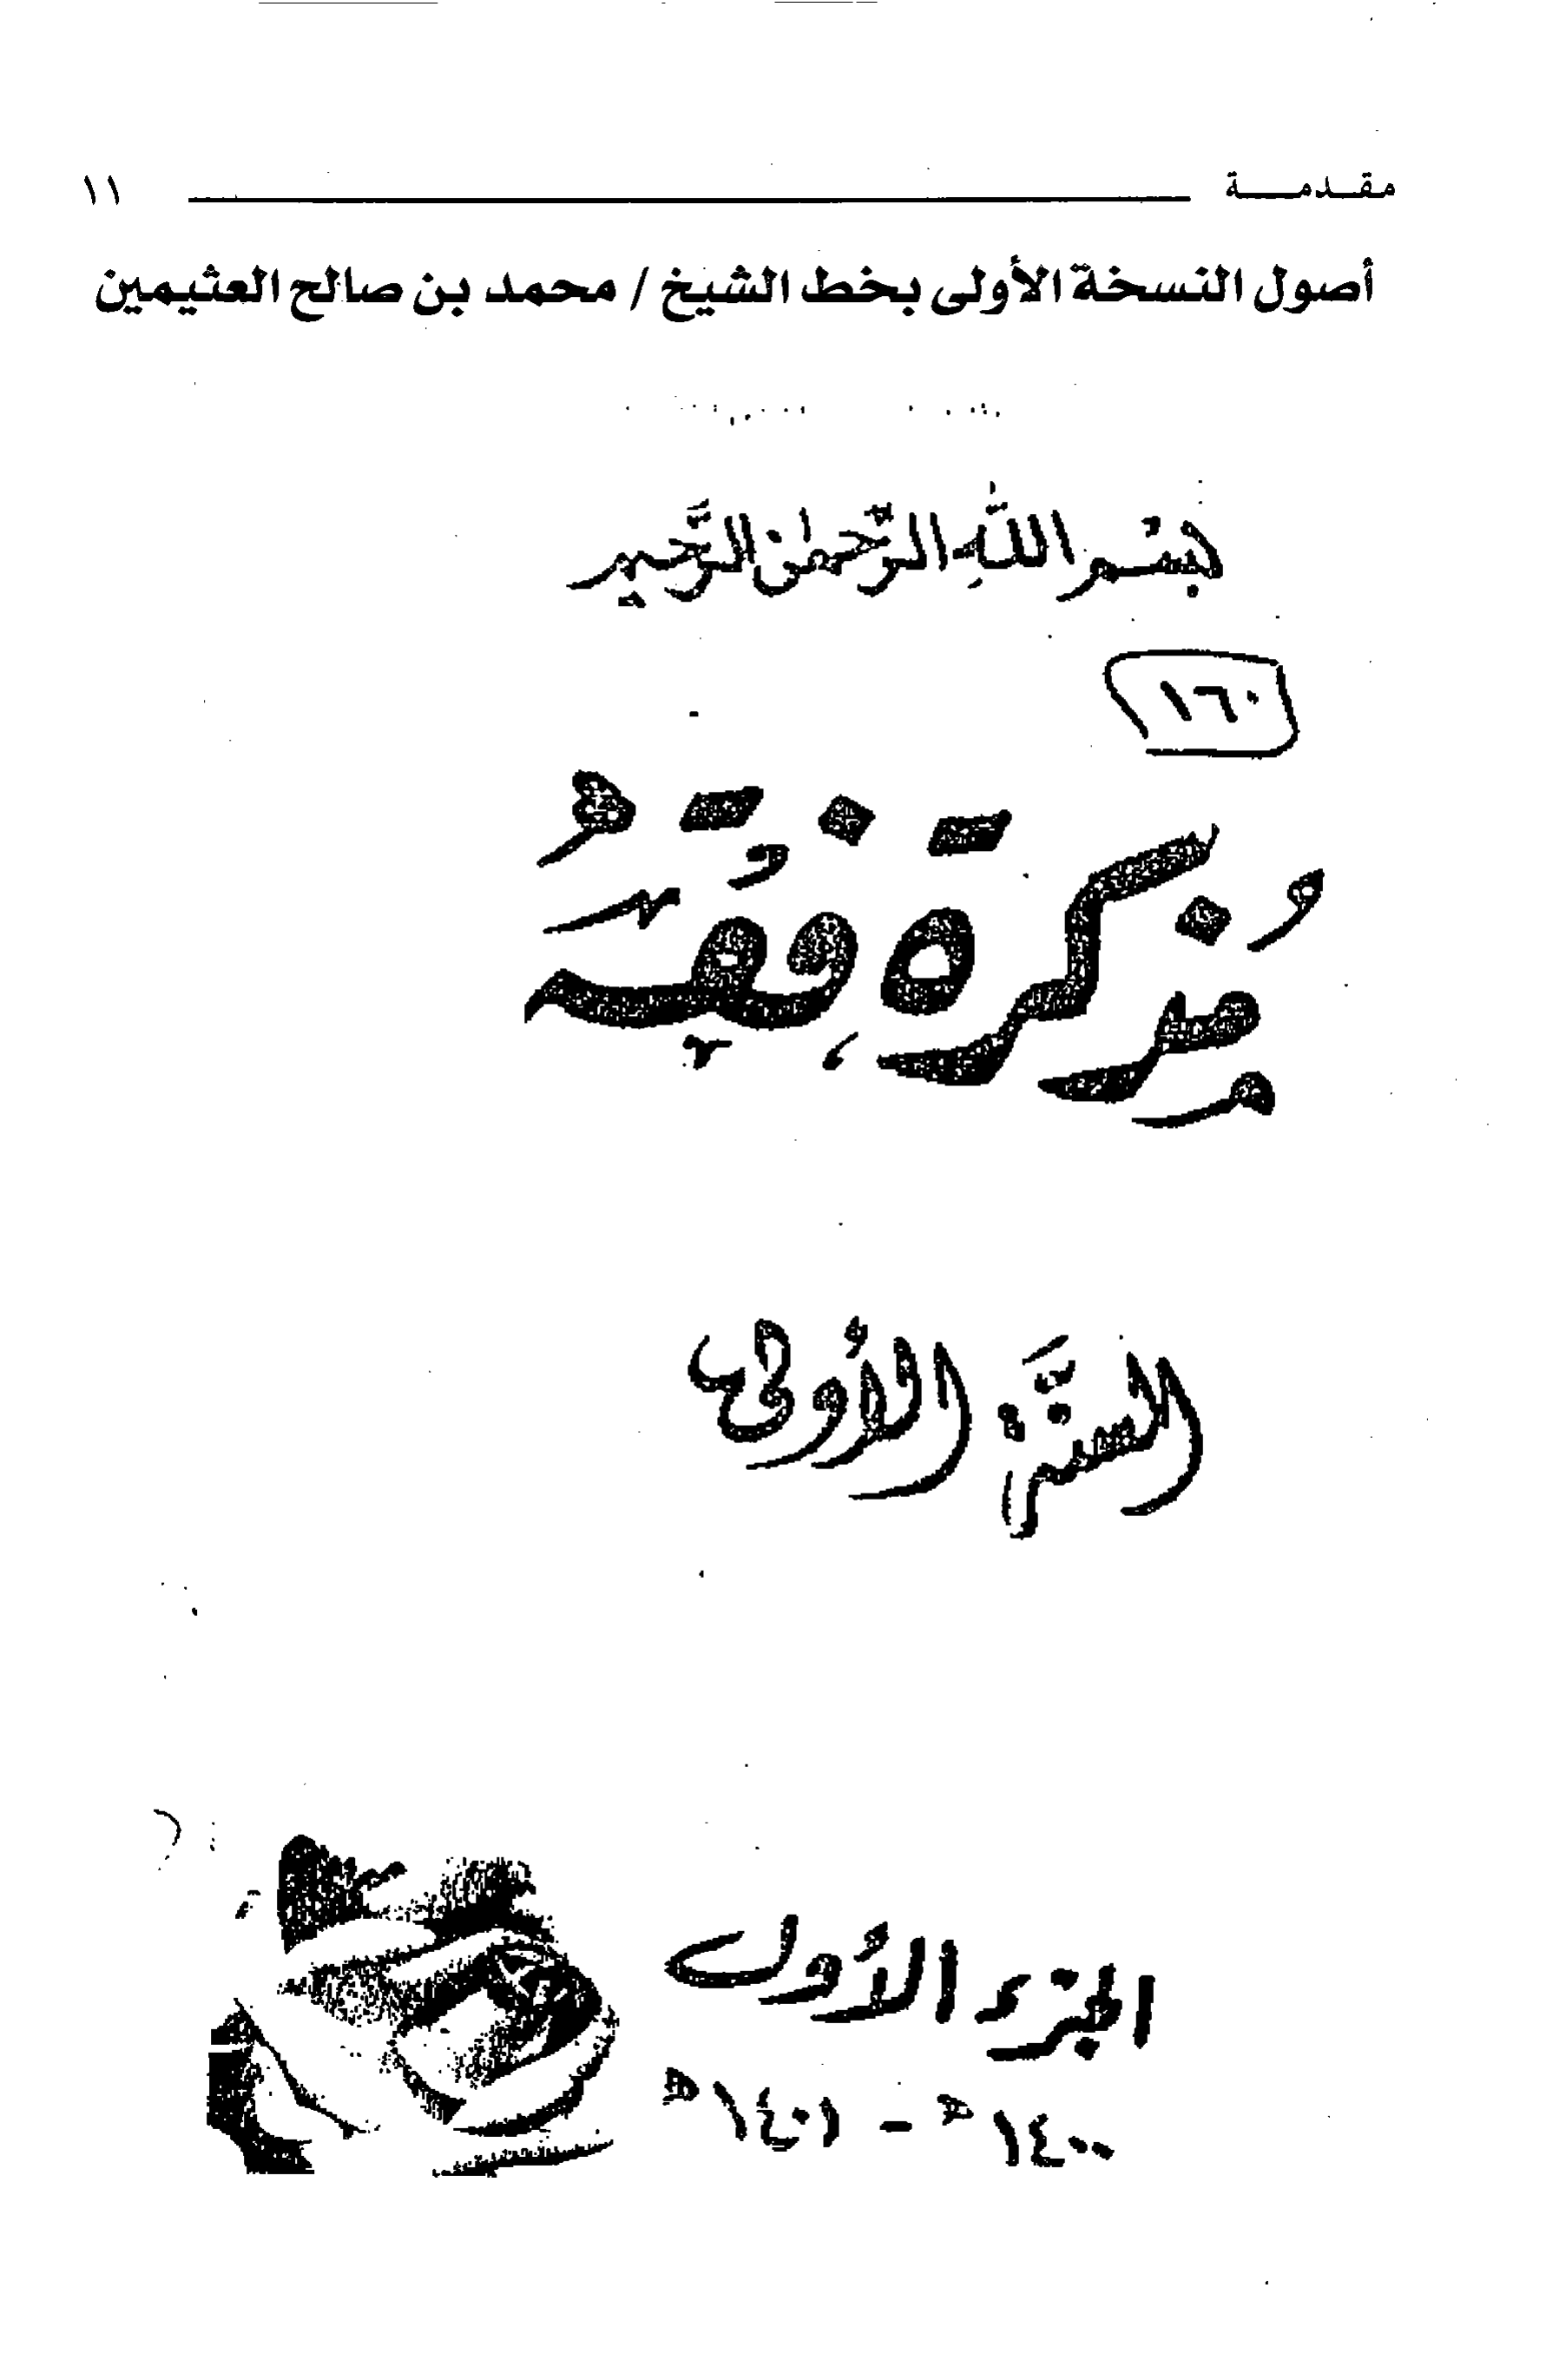 مقدمة ١١
أصول النسخة الأولى بخط الشيخ / محمد بن صالح العثيمين
بسم اللهِ الرَّحمٰن الرَّحيم
١٦٠
مُذكرة فقه
السَّنة الأولى
الجزء الأول
١٤٠٠ هـ - ١٤٠١ هـ